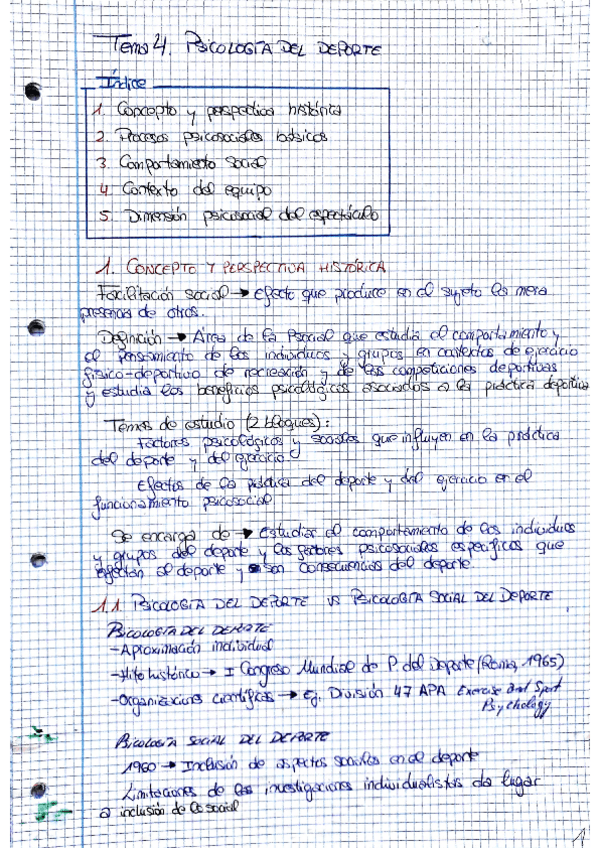 Tema 4. PSICOLOGÍA DEL DEPORTE
Índice
1. Concepto y perspectiva histórica
2. Procesos psicosociales básicos
3. Comportamiento social
4. Contexto del equipo
5. Dimensión psicosocial del espectáculo
1. CONCEPTO Y PERSPECTIVA HISTÓRICA
Facilitación social → Efecto que produce en el sujeto la mera
presencia de otros.
Definición → Área de la Psocial que estudia el comportamiento y
el pensamiento de los individuos y grupos en contextos de ejercicio
físico-deportivo de recreación y de las competiciones deportivas
y estudia los beneficios psicológicos asociados a la práctica deportiva
Temas de estudio (2 bloques):
Factores psicológicos y sociales que influyen en la práctica
del deporte y del ejercicio
Efectos de la práctica del deporte y del ejercicio en el
funcionamiento psicosocial
Se encarga de → Estudiar el comportamiento de los individuos
y grupos del deporte y los factores psicosociales específicos que
afectan al deporte y son consecuencias del deporte
1.1 PSICOLOGÍA DEL DEPORTE VS PSICOLOGÍA SOCIAL DEL DEPORTE
PSICOLOGÍA DEL DEPORTE
-Aproximación individual
-Hito histórico → I Congreso Mundial de P. del Deporte (Roma, 1965)
-Organizaciones científicas → Ej. División 47 APA Exercise and Sport
Psychology
PSICOLOGÍA SOCIAL DEL DEPORTE
1960 → Inclusión de aspectos sociales en el deporte
Limitaciones de las investigaciones individualistas da lugar
a inclusión de lo social
1